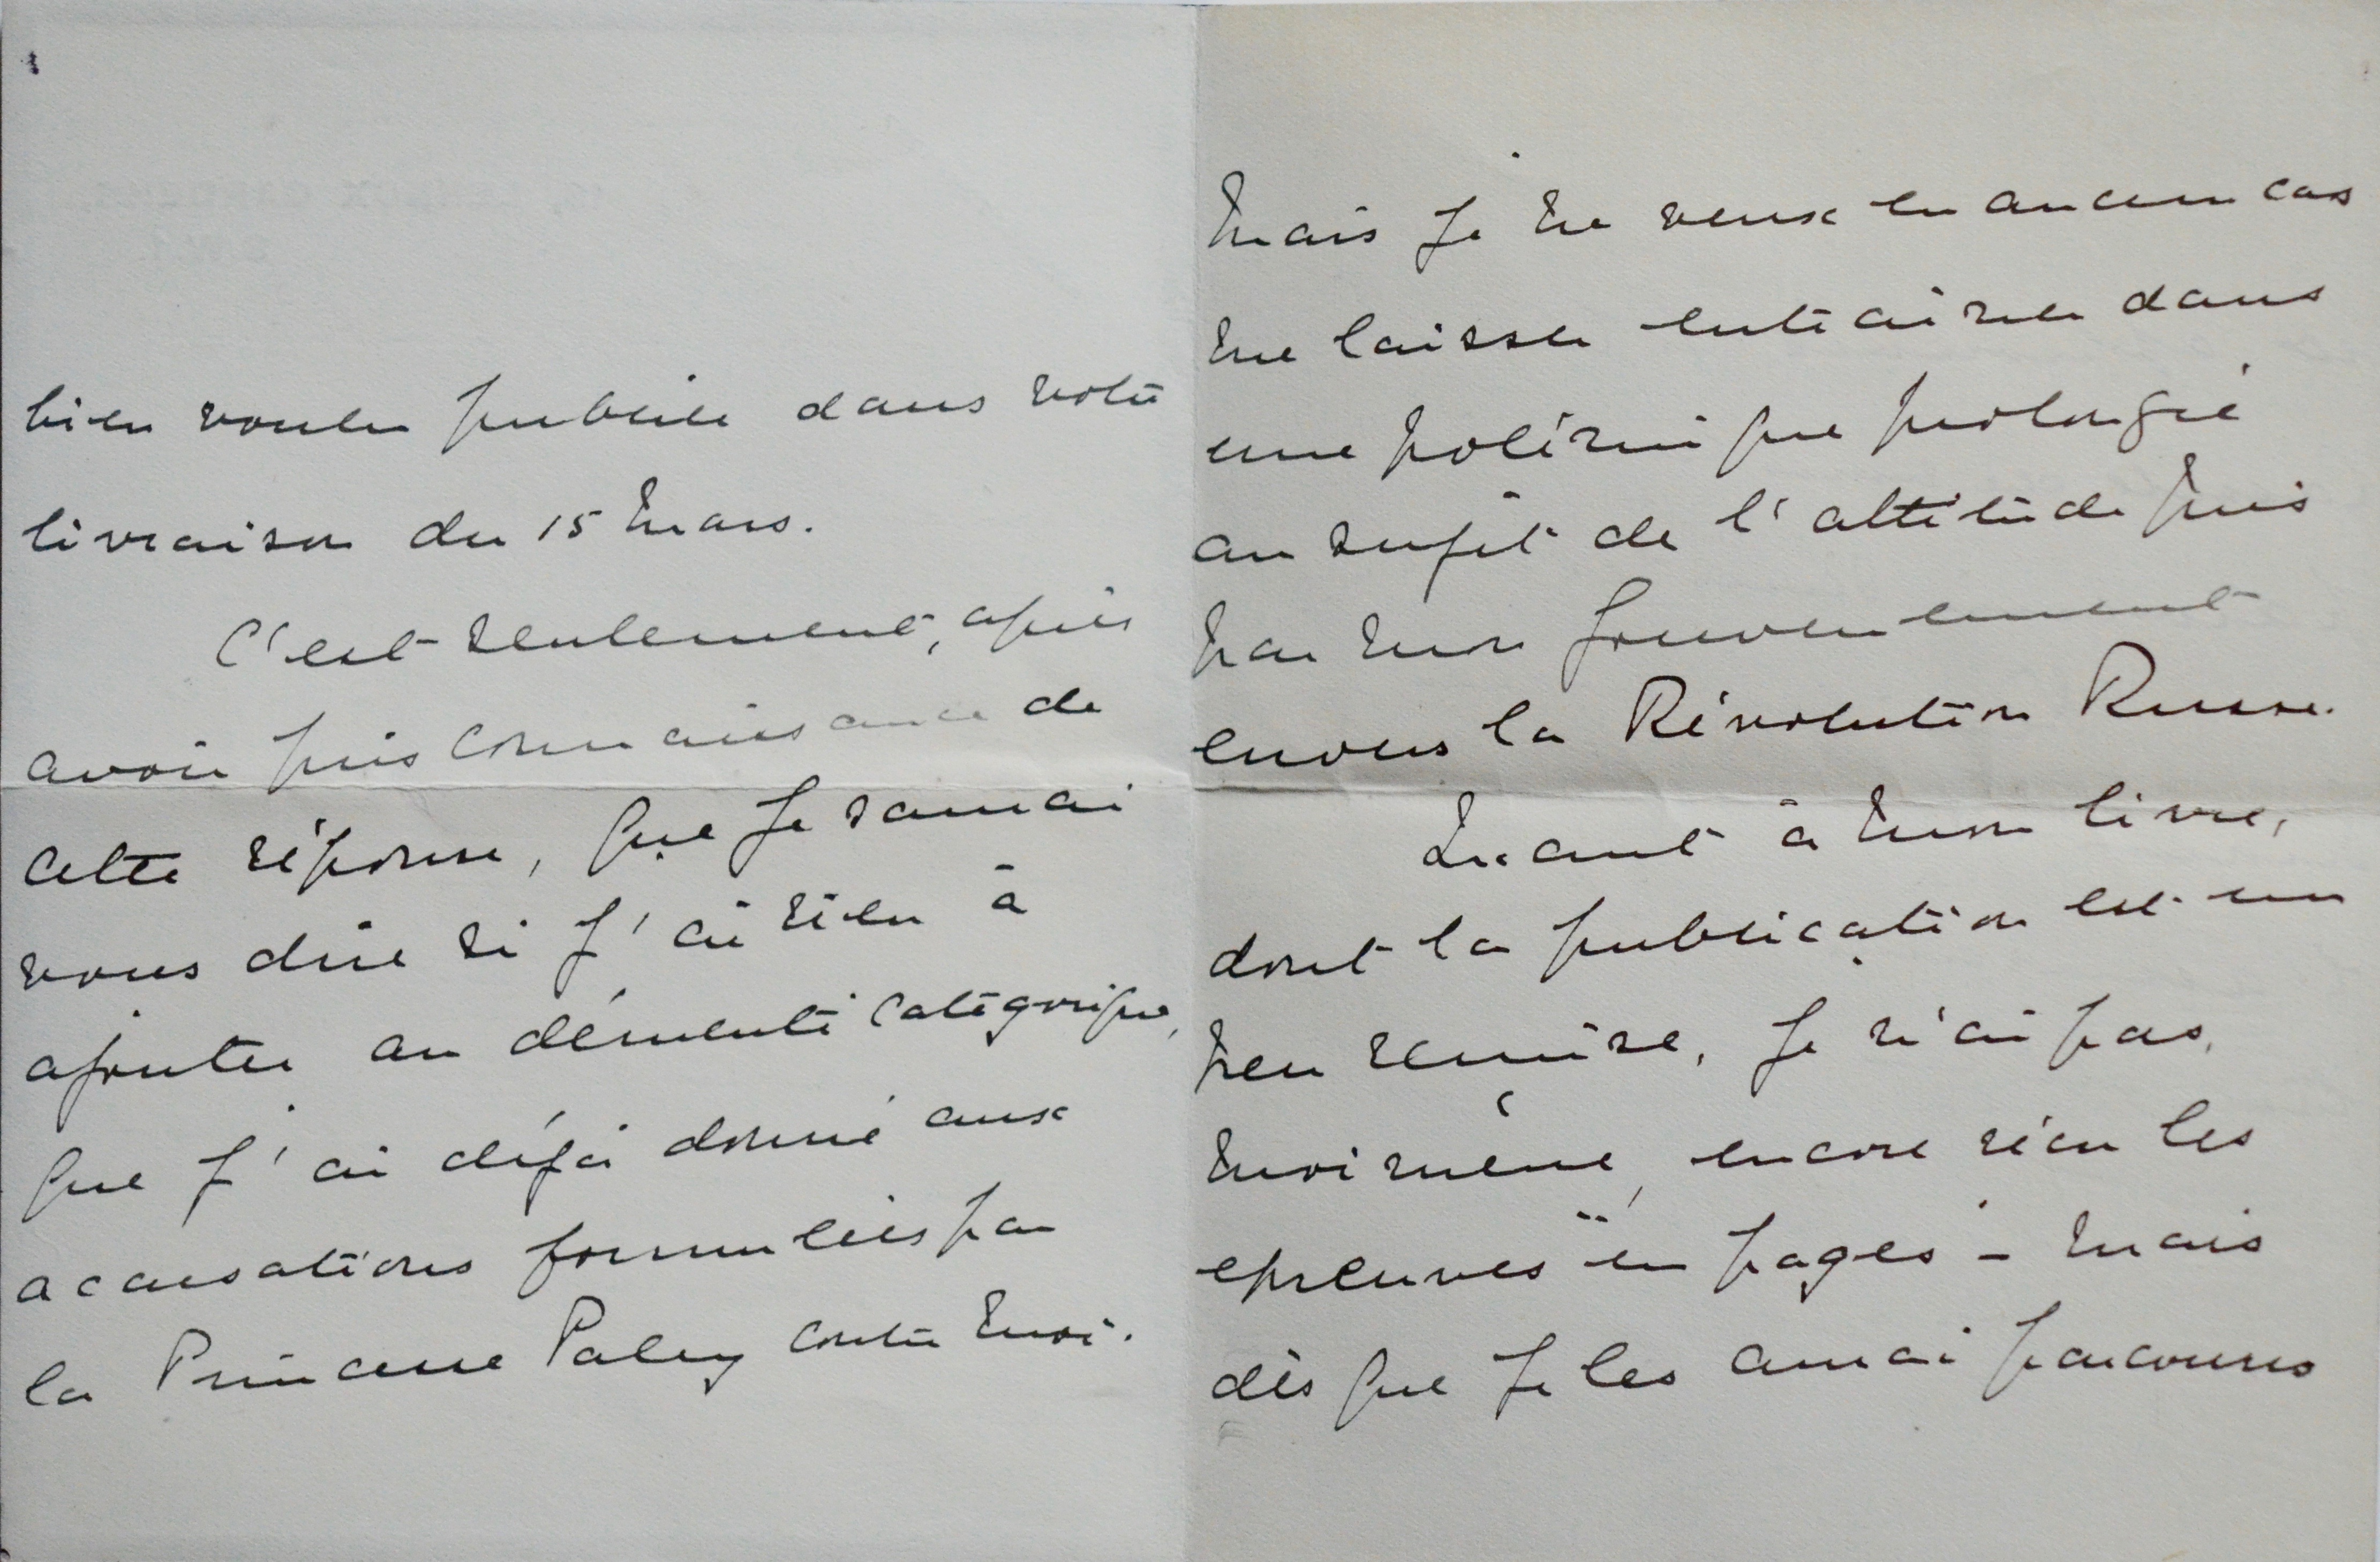 bien voulu publier dans votre
livraison du 15 Mars.
C'est seulement, après
avoir pris connaissance de
cette réponse, que je saurai
vous dire si j'ai rien à
ajouter au démenti catégorique,
que j'ai déjà donné aux
accusations formulées par
la Princesse Paley contre moi.
Mais je ne veux en aucun cas
me laisser entrainer dans
une polémique prolongée
au sujet de l'attitude pris
par mon gouvernement
envers la Révolution Russe.
Quant à mon livre,
dont la publication est un
peu remise, je n'ai pas,
moi même, encore reçu les
epreuves "en pages - mais
dès que je les aurai parcourus